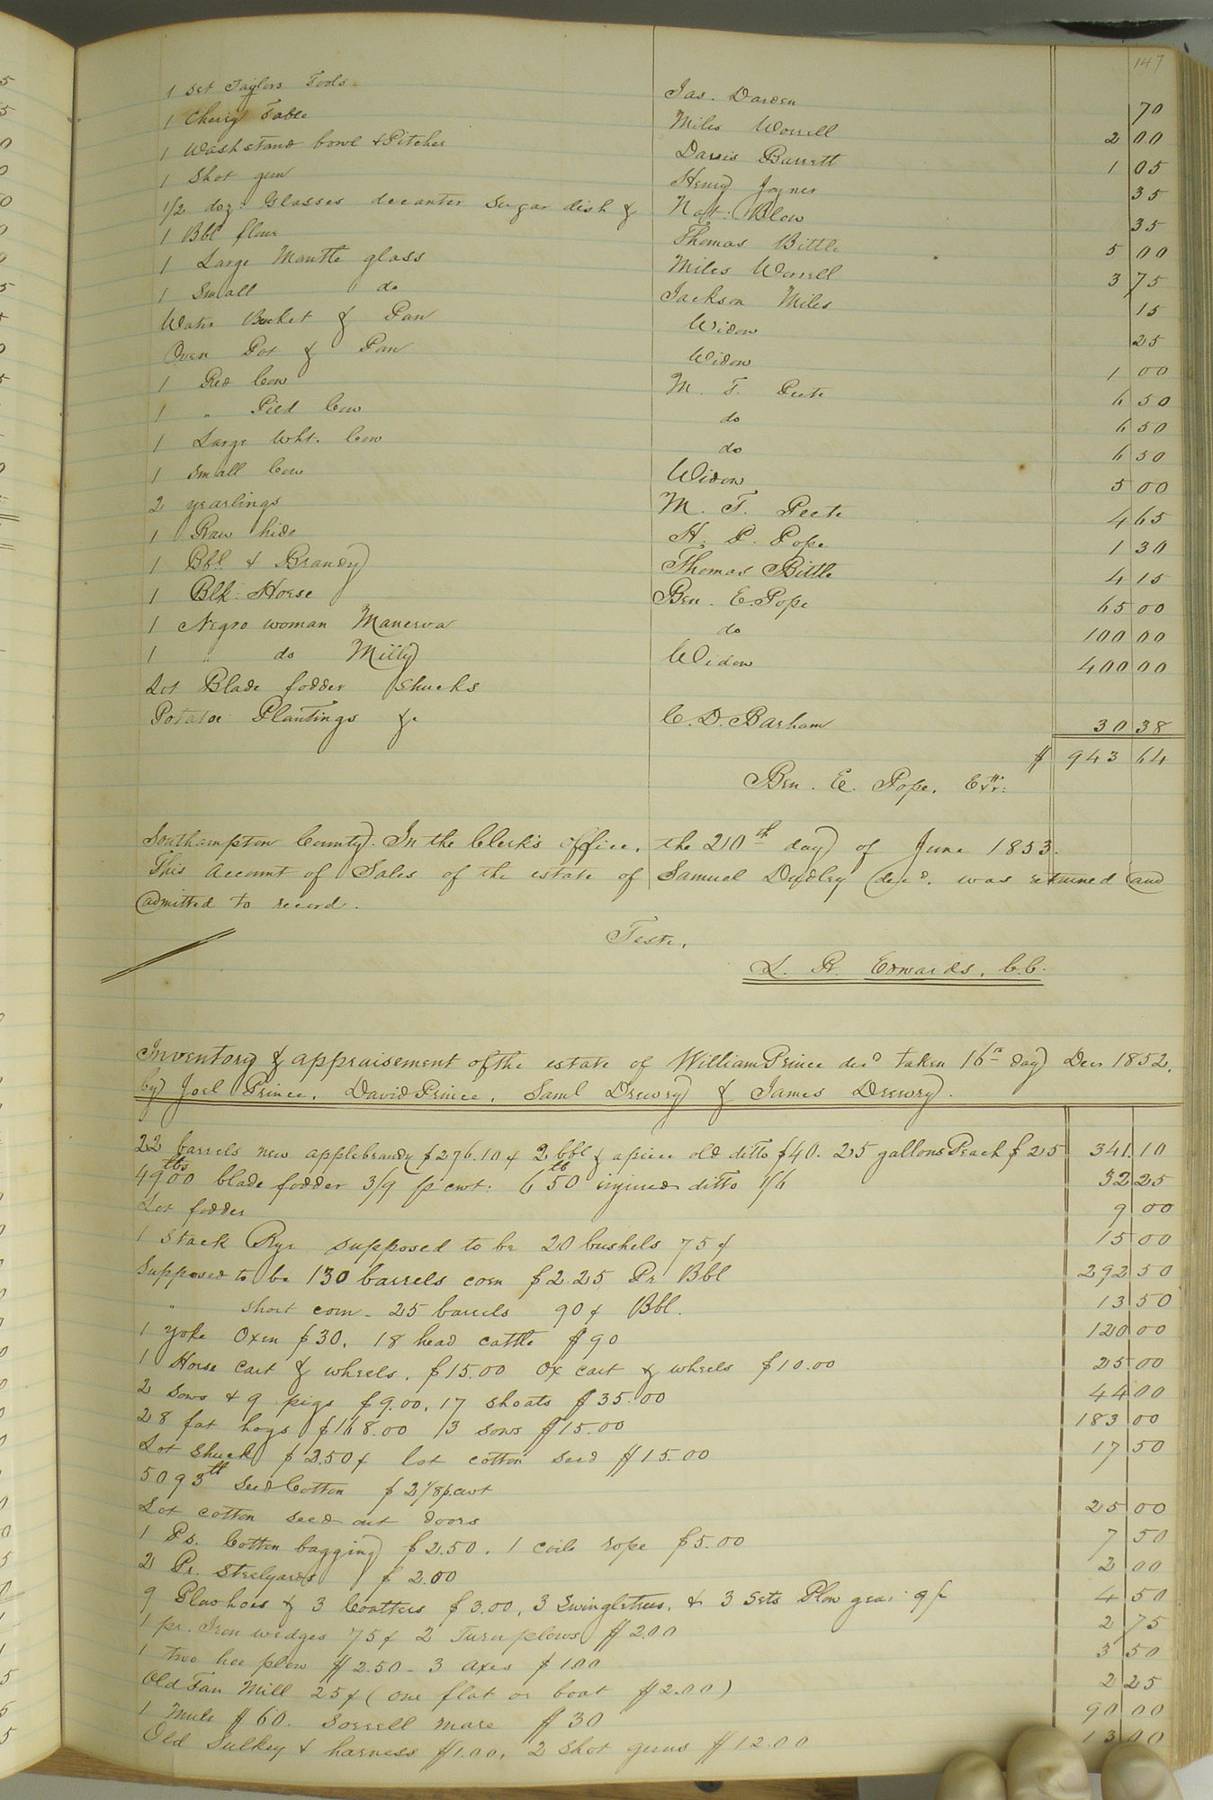 147
1 Set Taylors Tools Jas. Darden 70
1 Cherry Table Miles Worrell 2 00
1 Washstand bowl & Pitcher Davis Barrett 1 05
1 Shot gun Henry Joyner 35
1/2 doz. Glasses decanter Sugar dish & Nat. Blow 35
1 Bbl flour Thomas Bittle 5 00
1 Large Mantle glass Miles Worrell 3 75
1 Small do Jackson Miles 15
Water Bucket & Pan Widow 25
Oven Pot & Pan Widow 1 00
1 Red Cow M. T. Peete 6 50
1 " Pied Cow do 6 50
1 Large Wht. Cow do 6 50
1 Small Cow Widow 5 00
2 yearlings M. T. Peete 4 65
1 Raw hide H. P. Pope 1 30
1 Bbl & Brandy Thomas Bittle 4 15
1 Blk Horse Ben. E. Pope 65 00
1 Negro woman Manerva do 100 00
1 " do Milly Widow 400 00
Lot Blade fodder Shucks
Potatoe Plantings &c C. D. Barham 30 38
$ 943 64
Ben. E. Pope, Exr.
Southampton County. In the Clerk's office, the 20th day of June 1853.
This Account of Sales of the estate of Samuel Dudley decd. was returned and
admitted to record.
Teste,
L. R. Edwards, C.C.
Inventory & appraisement of the estate of William Prince decd taken 16th day Dec 1852.
by Joel Prince, David Prince, Saml Drewry & James Drewry.
22 barrels new applebrandy $276.10 & 2 bbl & apiece old ditto $40. 25 gallons Peach $25 341.10
4900 lbs blade fodder 3/9 pr cwt. 650 lb injured ditto 1/6 32 25
Lot fodder 9 00
1 Stack Rye supposed to be 20 bushels 75¢ 15 00
Supposed to be 130 barrels corn $2.25 Pr Bbl 292 50
" short corn - 25 barrels 90¢ Bbl. 13 50
1 yoke Oxen $30, 18 head cattle $90 120 00
1 Horse cart & wheels, $15.00 Ox cart & wheels $10.00 25 00
2 Sows & 9 pigs $9.00, 17 Shoats $35.00 44 00
28 fat hogs $168.00 13 sows $15.00 183 00
Lot shuck $2.50¢ lot cotton seed $15.00 17 50
5093 lb Seed Cotton $ 2 1/8 p. cwt
Lot cotton seed out doors 25 00
1 Ps. Cotton bagging $2.50. 1 coile rope $5.00 7 50
2 Pr. Steelyards $ 2.00 2 00
9 Plow hoes & 3 Coatters $3.00, 3 Swingletrees, & 3 Sets Plow gear 9/ 4 50
1 pr. Iron wedges 75¢ 2 Turn plows $2.00 2 75
1 two hoe plow $2.50 - 3 axes $1.00 3 50
Old Fan Mill 25¢ (one flat or boat $2.00) 2 25
1 Mule $60. Sorrell mare $30 90 00
Old Sulkey & harness $1.00, 2 Shot guns $12.00 13 00